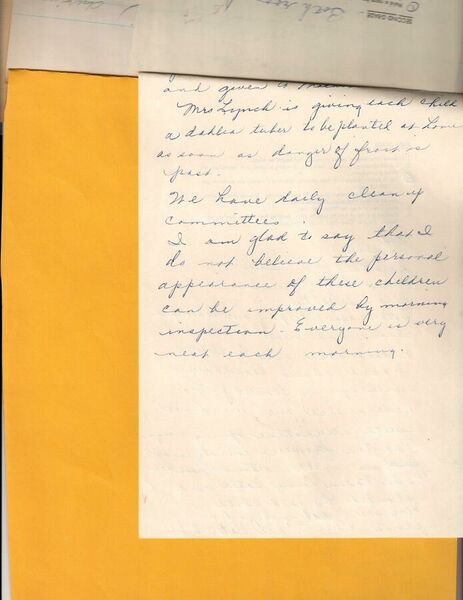 SECOND GRADE
and given to
Mrs Lynch is giving each child
a dahlia tuber to be planted at home
as soon as danger of frost is
past.
We have daily clean up
committees.
I am glad to say that I
do not believe the personal
appearance of these children
can be improved by morning
inspection. Everyone is very
neat each morning.